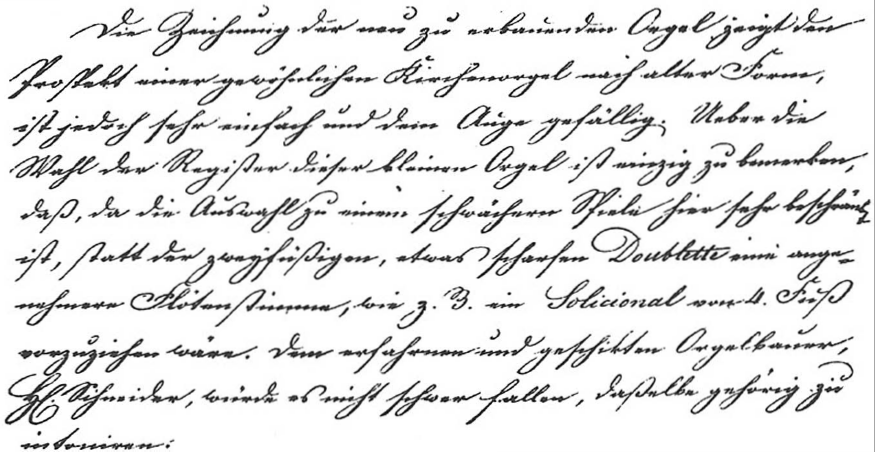 Die Zeichnung der neu zu erbauenden Orgel zeigt den
Prospekt einer gewöhnlichen Kirchenorgel nach alter Form,
ist jedoch sehr einfach und dem Auge gefällig. Ueber die
Wahl der Register dieser kleinen Orgel ist einzig zu bemerken,
daß, da die Auswahl zu einem schwächern Spiele hier sehr beschränkt
ist, statt der zweyfüßigen, etwas scharfen Doublette eine ange-
nehmere Flötenstimme, wie z. B. ein Solicional von 4. Fuß
vorzuziehen wäre. Dem erfahrnen und geschikten Orgelbauer,
H. Schneider, würde es nicht schwer fallen, daßelbe gehörig zu
intoniren: